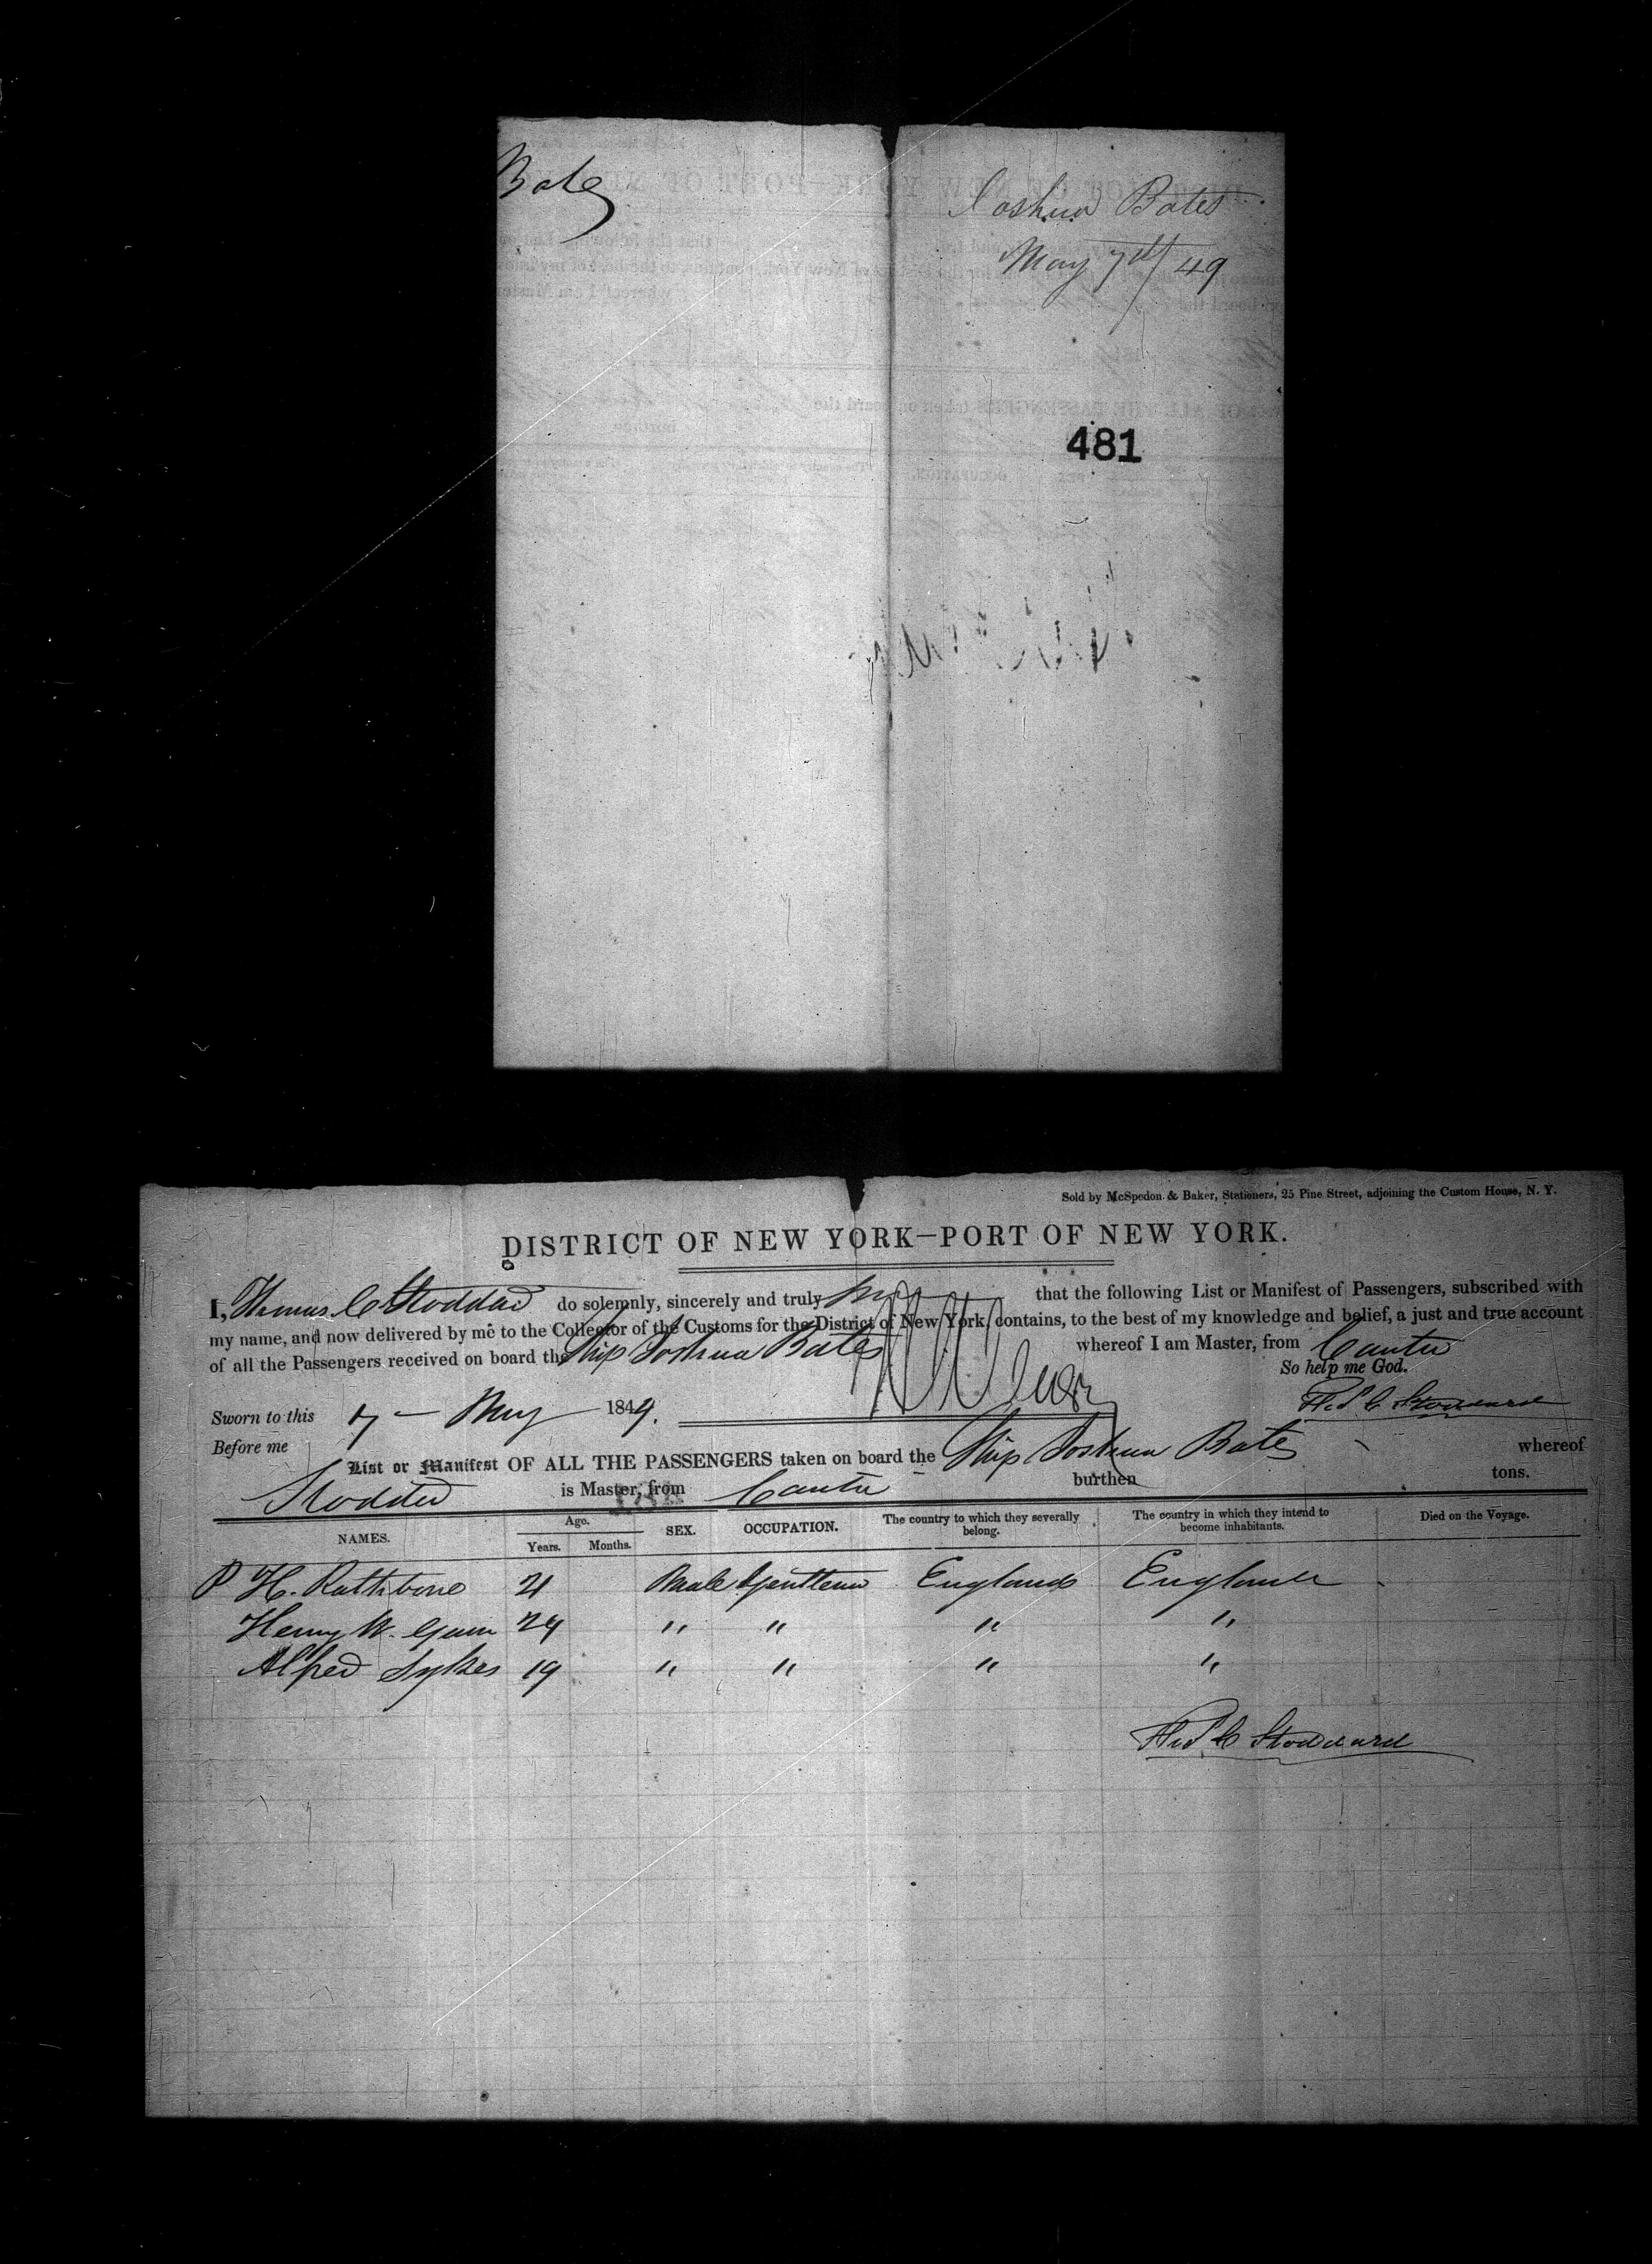 Bates
Joshua Bates
May 7th/49
481
Sold by McSpedon & Baker, Stationers, 25 Pine Street, adjoining the Custom House, N. Y.
DISTRICT OF NEW YORK—PORT OF NEW YORK.
I, Thomas C Stoddard do solemnly, sincerely and truly that the following List or Manifest of Passengers, subscribed with
my name, and now delivered by me to the Collector of the Customs for the District of New York, contains, to the best of my knowledge and belief, a just and true account
of all the Passengers received on board the Ship Joshua Bates whereof I am Master, from Canton
So help me God.
Sworn to this 7 — May 1849.
C Stoddard
Before me
List or Manifest OF ALL THE PASSENGERS taken on board the Ship Joshua Bates whereof
is Master, from Canton burthen tons.
NAMES. Age. Years. Months. SEX. OCCUPATION. The country to which they severally belong. The country in which they intend to become inhabitants. Died on the Voyage.
P H. Rathbone 21 Male Gentleman England England
Henry W. 24 " " " "
Alfred Sykes 19 " " " "
C Stoddard